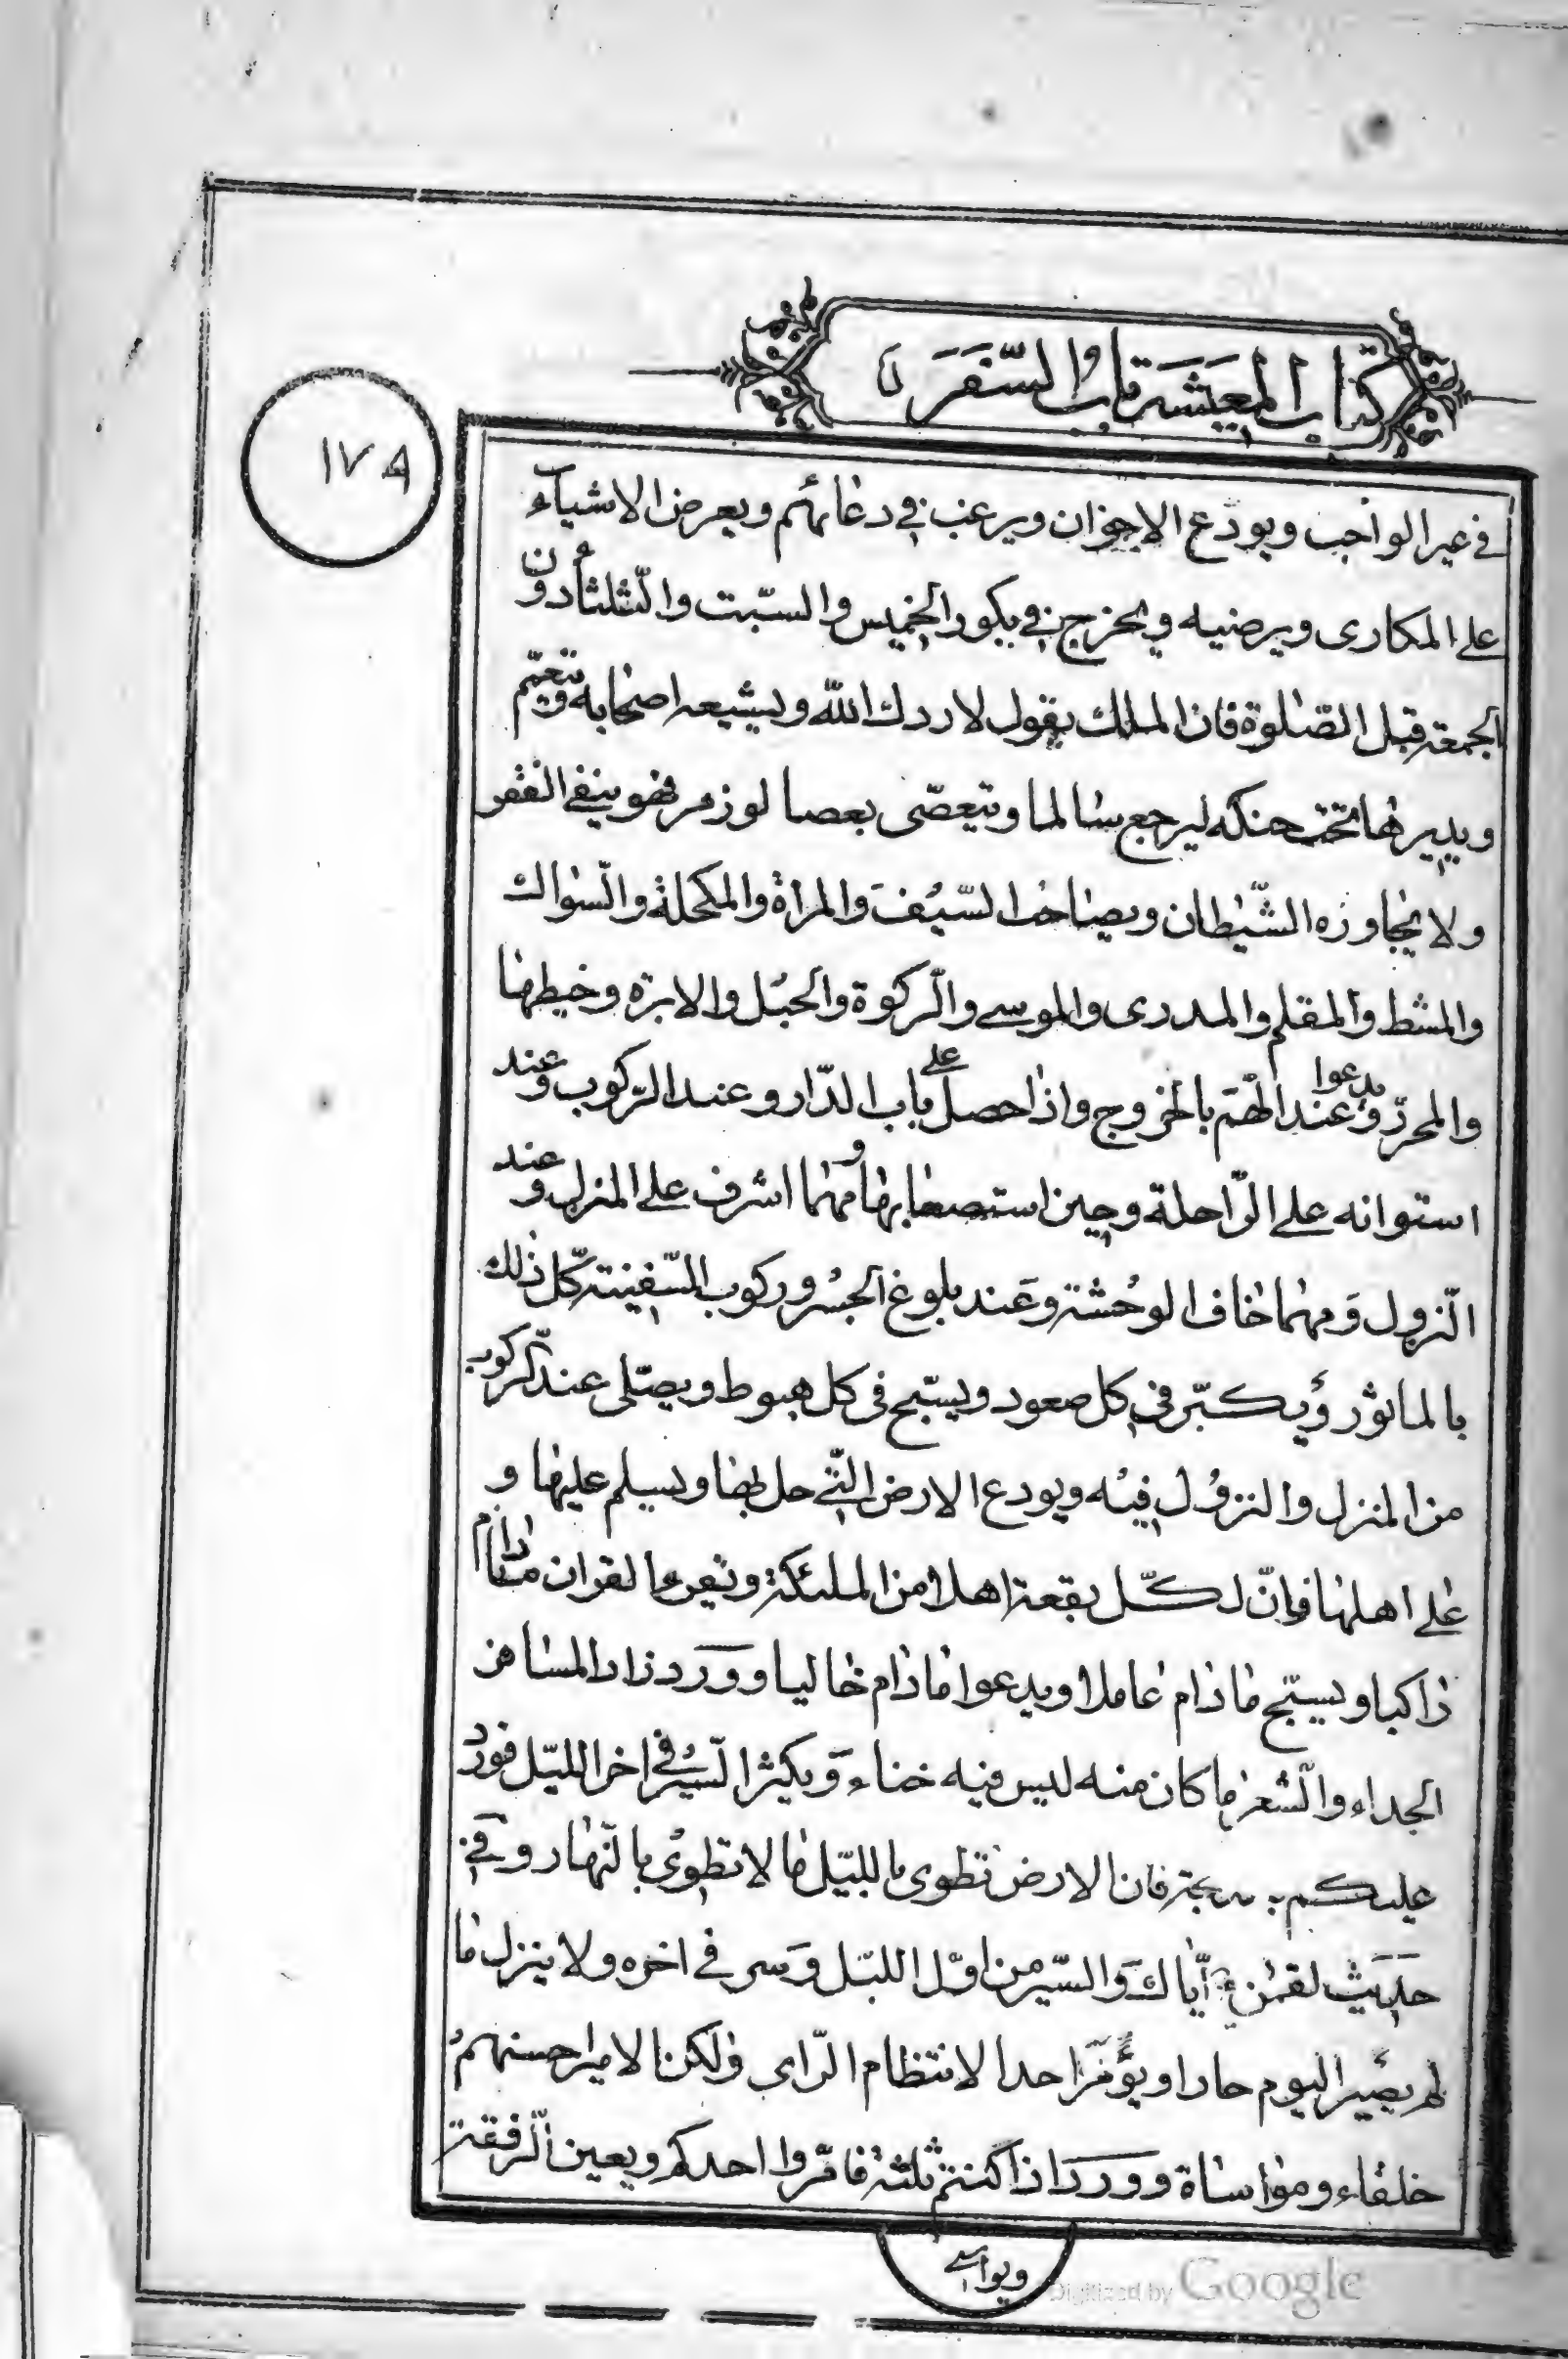 كتاب المعيشة باب السفر
١٧٨
في غير الواجب ويودع الاخوان ويرغب في دعائهم ويعرض الاشياء
على المكارى ويرضيه ويخرج في بكور الخميس والسبت والثلثاء دون
الجمعة قبل الصلوة فان الملك يقول لا ردك الله ويشيعه اصحابه ويتعمم
ويديرها تحت حنكه ليرجع سالما ويتعصى بعصا لوز مر فهو ينفي الفقر
ولا يجاوزه الشيطان ويصاحب السيف والمراة والمكحلة والسواك
والمشط والمقلم والمدرى والموسى والركوة والحبل والابرة وخيطها
والمحرز ويدعوا عند الهم بالخروج واذا حصل على باب الدار وعند الركوب وعند
استوائه على الراحلة وحين استصعابها ومهما اشرف على المنزل وعند
النزول ومهما خاف الوحشة وعند بلوغ الجسر وركوب السفينة كل ذلك
بالماثور ويكبر في كل صعود ويسبح في كل هبوط ويصلى عند الركوب
من المنزل والنزول فيه ويودع الارض التي حل بها ويسلم عليها و
على اهلها فان لكل بقعة اهلا من الملئكة ويقرء القران مادام
راكبا ويسبح مادام عاملا ويدعوا مادام خاليا وورد زاد المسافر
الحداء والشعر ما كان منه ليس فيه خناء ويكثر السير في اخر الليل فورد
عليكم فان الارض تطوى بالليل ما لا تطوى بالنهار وفي
حديث لقمن اياك والسير من اول الليل وسر في اخره ولا ينزل ما
لم يصير اليوم حارا ويؤمر احدا لانتظام الراى وليكن الامير احسنهم
خلقاء ومواساة وورد اذا كنتم ثلثة فامروا احدكم ويعين الرفقة
ويواسى
Digitized by Google